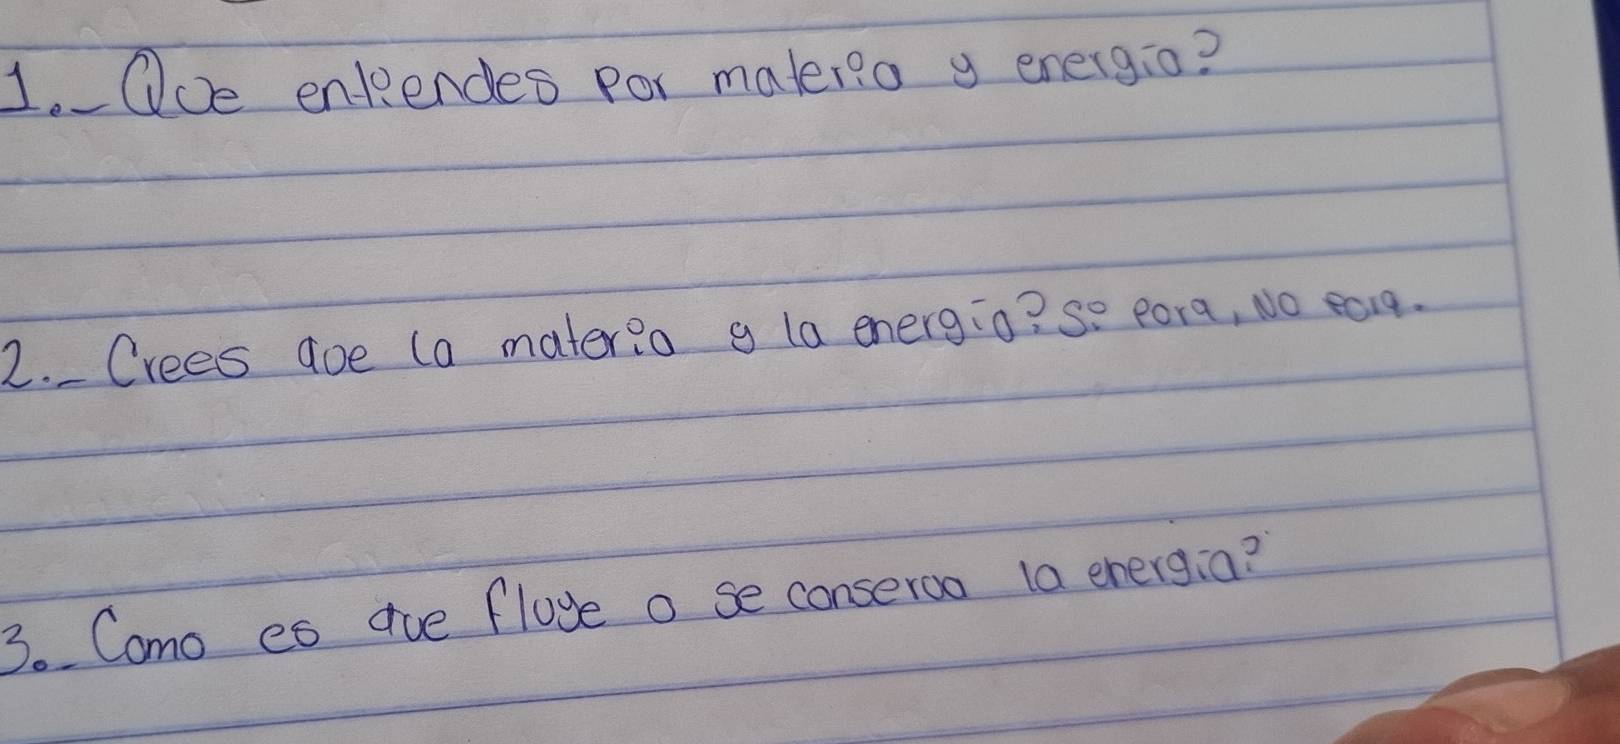 1.- Que entiendes por materia y energía?
2.- Crees que la materia y la energía? Si para, No para.
3.- Como es que fluye o se conserva la energía?